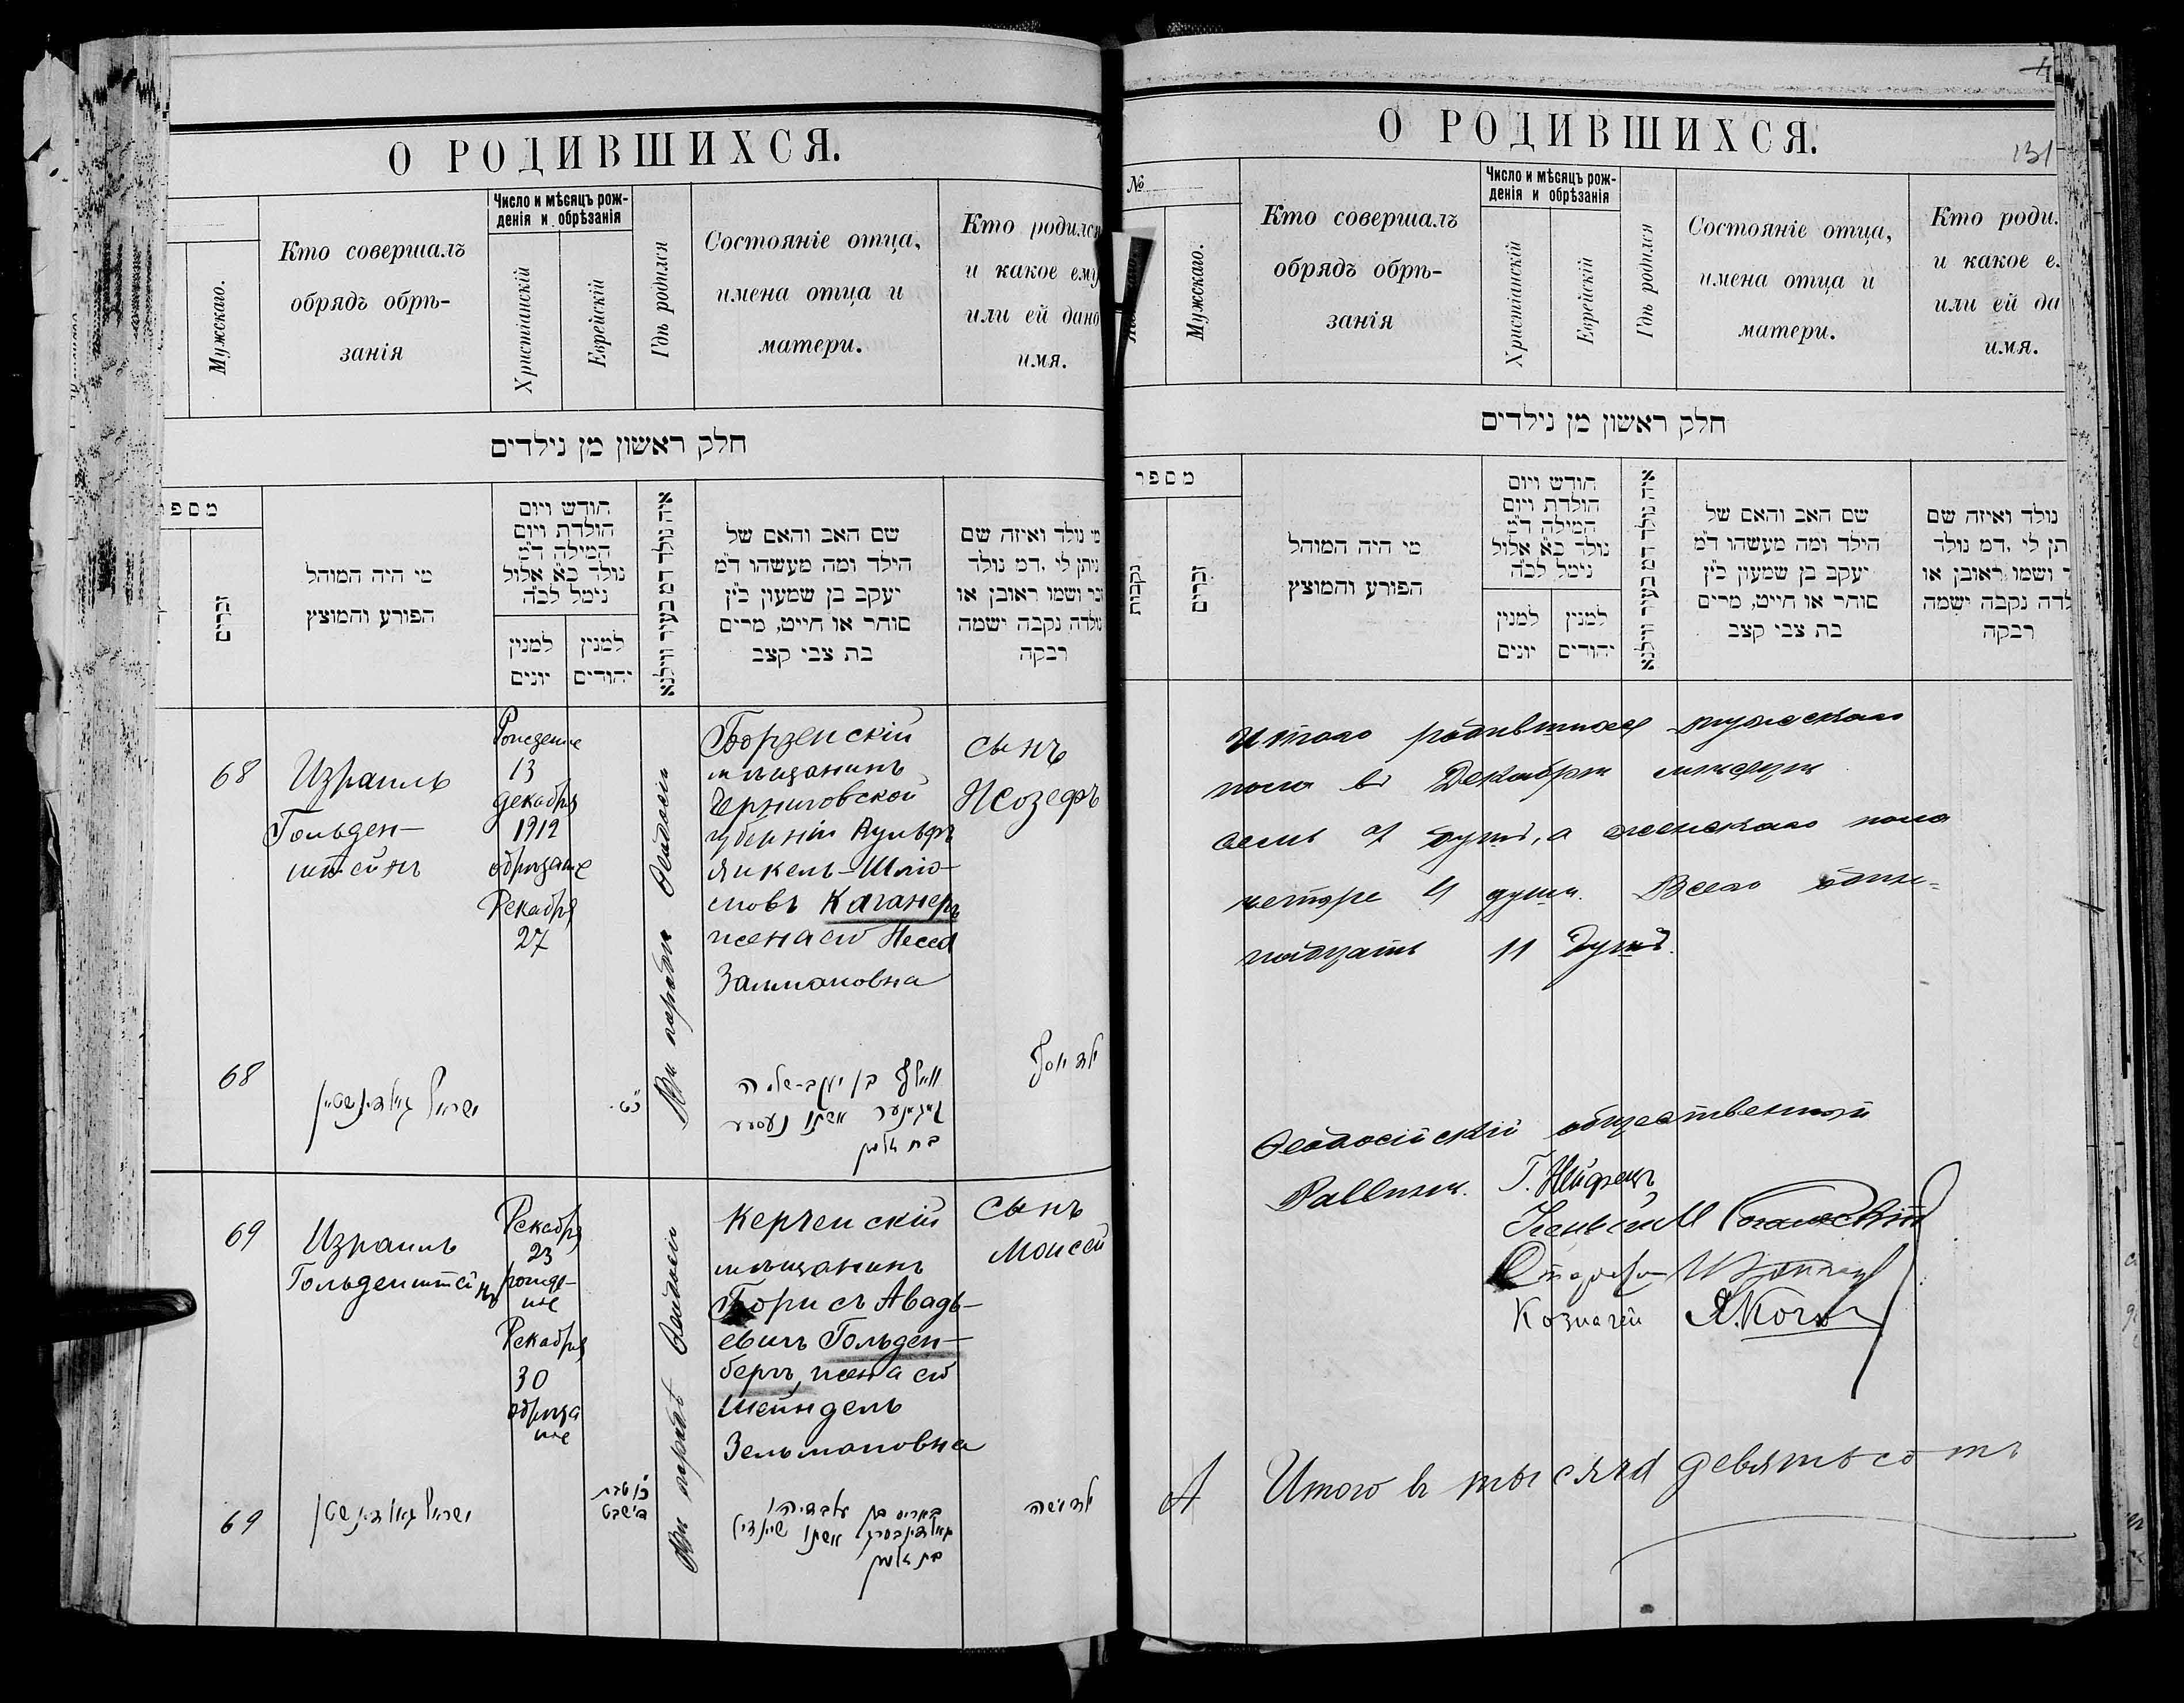 О РОДИВШИХСЯ.
Мужскаго.
Кто совершалъ
обрядъ обрѣ-
занія
Число и мѣсяцъ рож-
денія и обрѣзанія
Христіанскій
Еврейскій
Гдѣ родился
Состояніе отца,
имена отца и
матери.
Кто родился
и какое ему
или ей дано
имя.
חלק ראשון מן נילדים
זכרים
מי היה המוהל
הפורע והמוצץ
חודש ויום
הולדת ויום
המילה ד"מ
נולד כ"א אלול
נימל לכ"ה
למנין
יונים
למנין
יהודים
איה נולד דמ בעיר ווילנא
שם האב והאם של
הילד ומה מעשהו ד"מ
יעקב בן שמעון כ"ץ
סוחר או חייט, מרים
בת צבי קצב
מי נולד ואיזה שם
ניתן לי, דמ נולד
זכר ושמו ראובן או
נולדה נקבה ישמה
רבקה
68
Израиль
Гольден-
штейнъ
13
декабря
1912
обрѣзаніе
Декабря
27
Ѳеодосіи
Борзенскій
мѣщанинъ
Черниговской
губерніи Вульфъ
Янкель-Шлio-
мовъ Каганеръ
жена его Несса
Залмановна
сынъ
Иозефъ
68
ישראל גאלדינשטיין
וואלף בן יעקב-שלמה
קאגאנער אשתו נעסע
בת זלמן
ילד יוסף
69
Израиль
Гольденштейнъ
Декабря
23
рожде-
ніе
Декабря
30
обрѣза
ніе
Ѳеодосіи
Керченскій
мѣщанинъ
Борисъ Авадь-
евичъ Гольден-
бергъ, жена его
Шейндель
Зельмановна
сынъ
Моисей
69
ישראל גאלדינשטיין
בת זלמן
ילד משה
О РОДИВШИХСЯ.
131
№
Мужскаго.
Кто совершалъ
обрядъ обрѣ-
занія
Число и мѣсяцъ рож-
денія и обрѣзанія
Христіанскій
Еврейскій
Гдѣ родился
Состояніе отца,
имена отца и
матери.
Кто роди
и какое е
или ей да
имя.
חלק ראשון מן נילדים
מספר
נקבות
זכרים
מי היה המוהל
הפורע והמוצץ
חודש ויום
הולדת ויום
המילה ד"מ
נולד כ"א אלול
נימל לכ"ה
למנין
יונים
למנין
יהודים
איה נולד דמ בעיר ווילנא
שם האב והאם של
הילד ומה מעשהו ד"מ
יעקב בן שמעון כ"ץ
סוחר או חייט, מרים
בת צבי קצב
נולד ואיזה שם
תן לי, דמ נולד
ושמו ראובן או
לדה נקבה ישמה
רבקה
Итого родившихся мужскаго
пола въ Декабрѣ мѣсяцѣ
семь 7 душъ, а женскаго пола
четыре 4 души. Всего один-
надцать 11 душъ.
Ѳеодосійскій общественный
Раввинъ. Г. Нейфецъ
Ученый М
Староста
Козначей Я.
Итого въ тысяча девятьсотъ